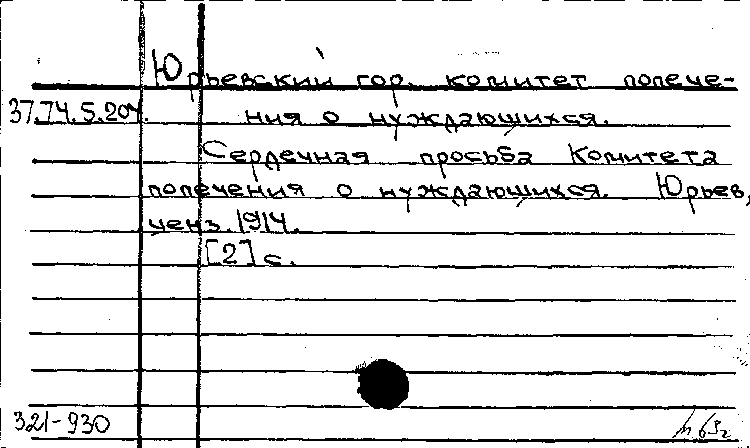 Юрьевский гор. комитет попече-
37.74.5.204. ния о нуждающихся.
Сердечная просьба Комитета
попечения о нуждающихся. Юрьев,
ценз. 1914.
[2] с.
321-930